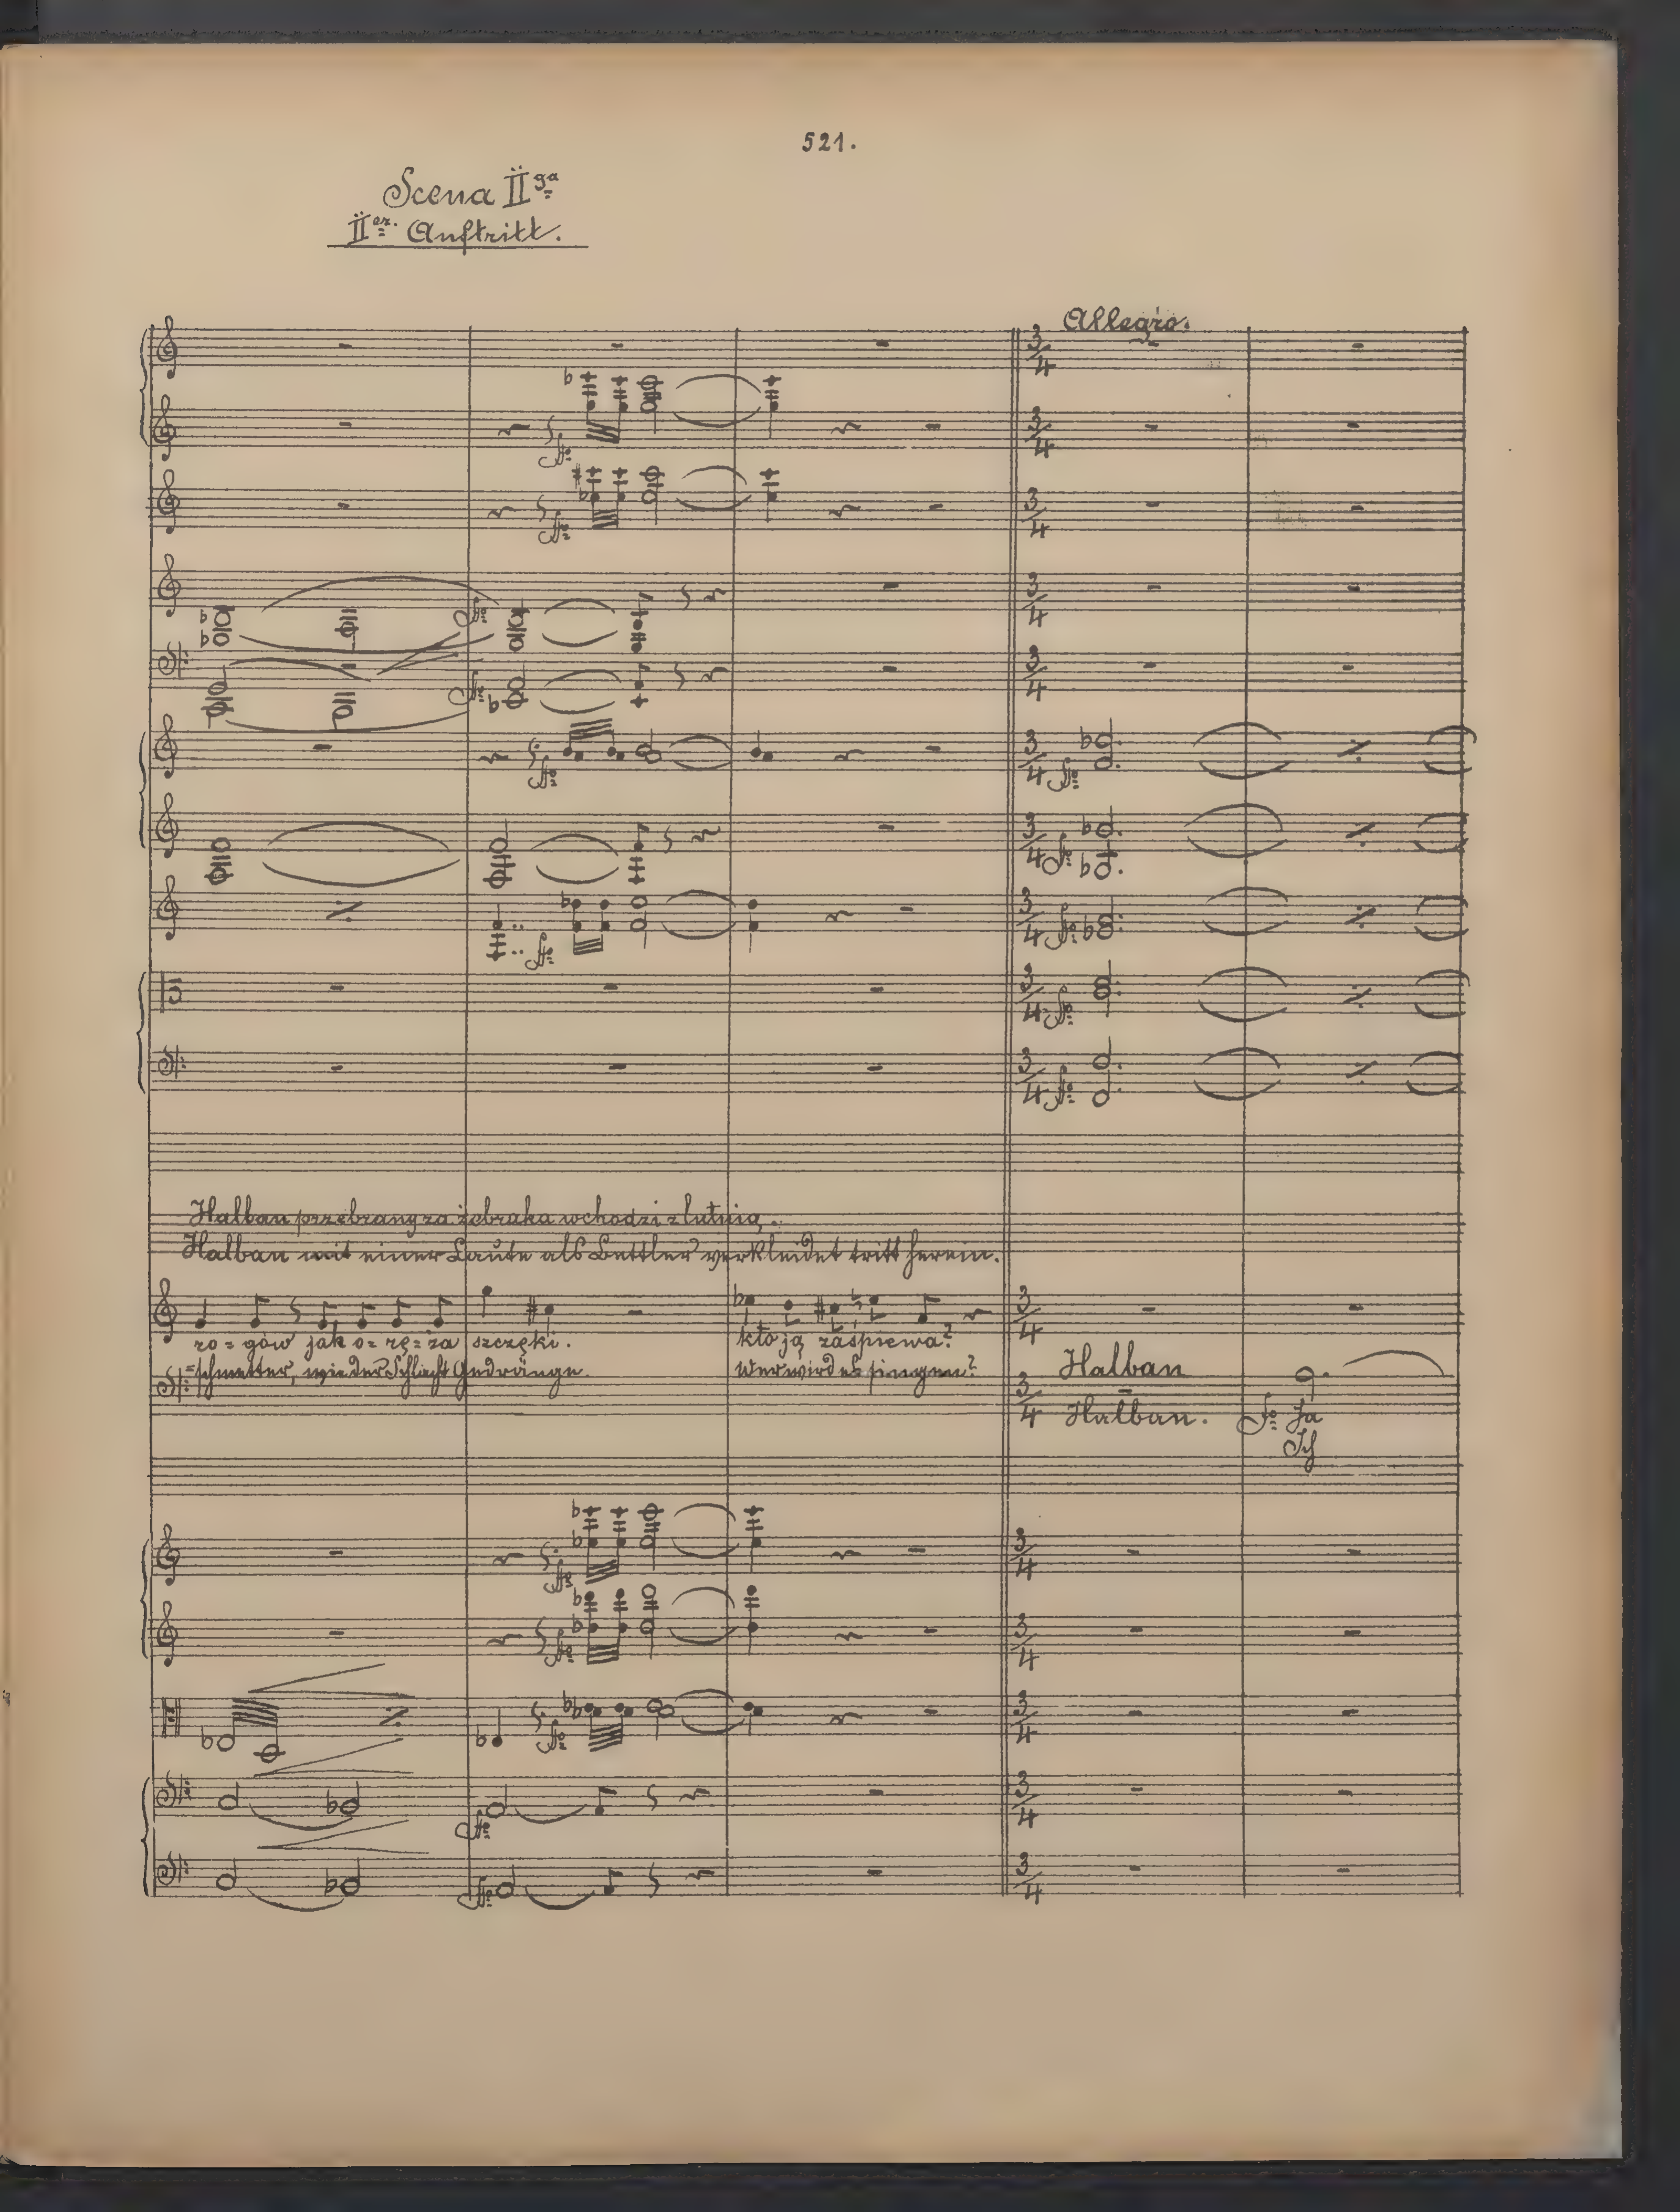 521.
Scena II ga
II er. Auftritt.
Allegro.
Halban przebrany za żebraka wchodzi z lutnią.
Halban mit einer Laute als Bettler verkleidet tritt herein.
ro=gów jak o=rę=ża szczęki. kto ją zaśpiewa?
=schmetter, wie der Schlacht Gedränge. Wer wird es singen?
Halban
Halban. Ja
Ich